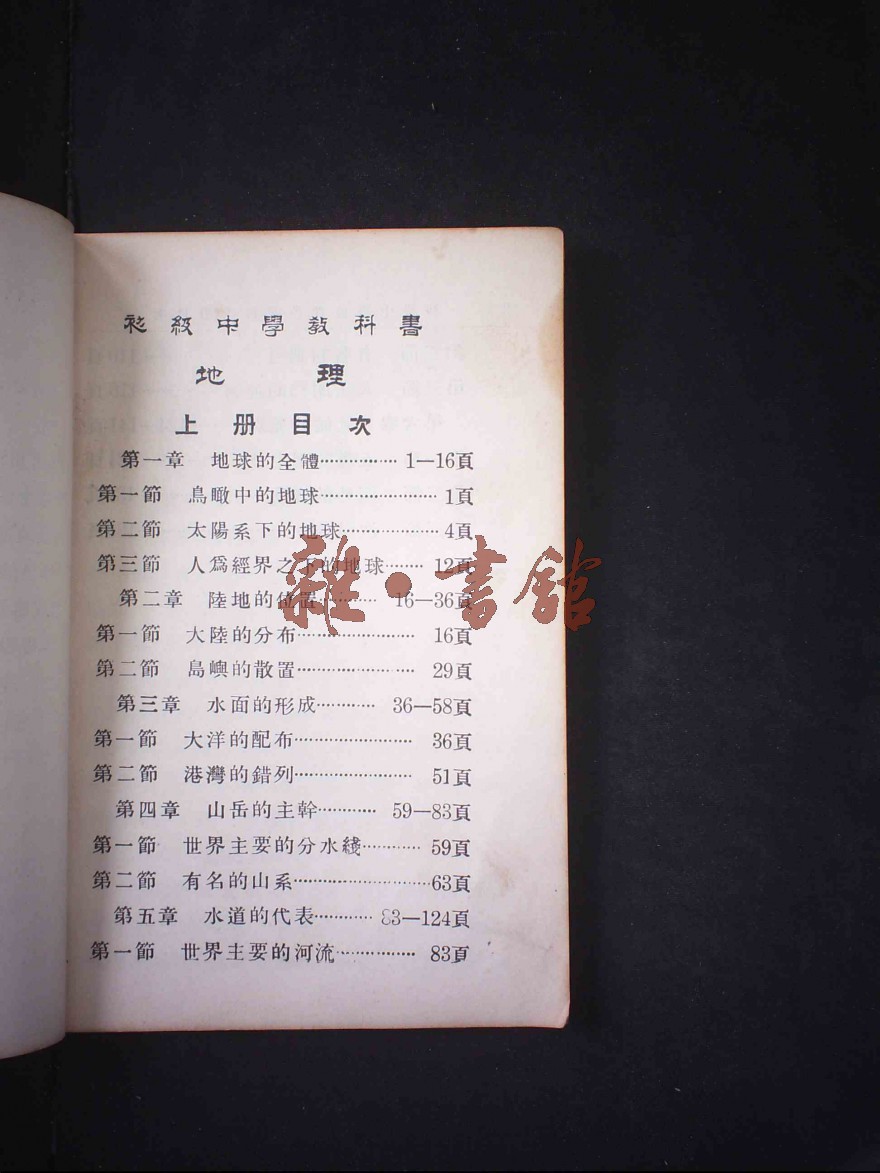 初級中學敎科書
地理
上册目次
第一章 地球的全體…………… 1—16頁
第一節 鳥瞰中的地球…………………… 1頁
第二節 太陽系下的地球……………… 4頁
第三節 人爲經界之下的地球……… 12頁
第二章 陸地的位置………… 16—36頁
第一節 大陸的分布…………………… 16頁
第二節 島嶼的散置…………………… 29頁
第三章 水面的形成………… 36—58頁
第一節 大洋的配布…………………… 36頁
第二節 港灣的錯列…………………… 51頁
第四章 山岳的主幹………… 59—83頁
第一節 世界主要的分水綫………… 59頁
第二節 有名的山系………………………63頁
第五章 水道的代表………… 83—124頁
第一節 世界主要的河流…………… 83頁
雜·書館